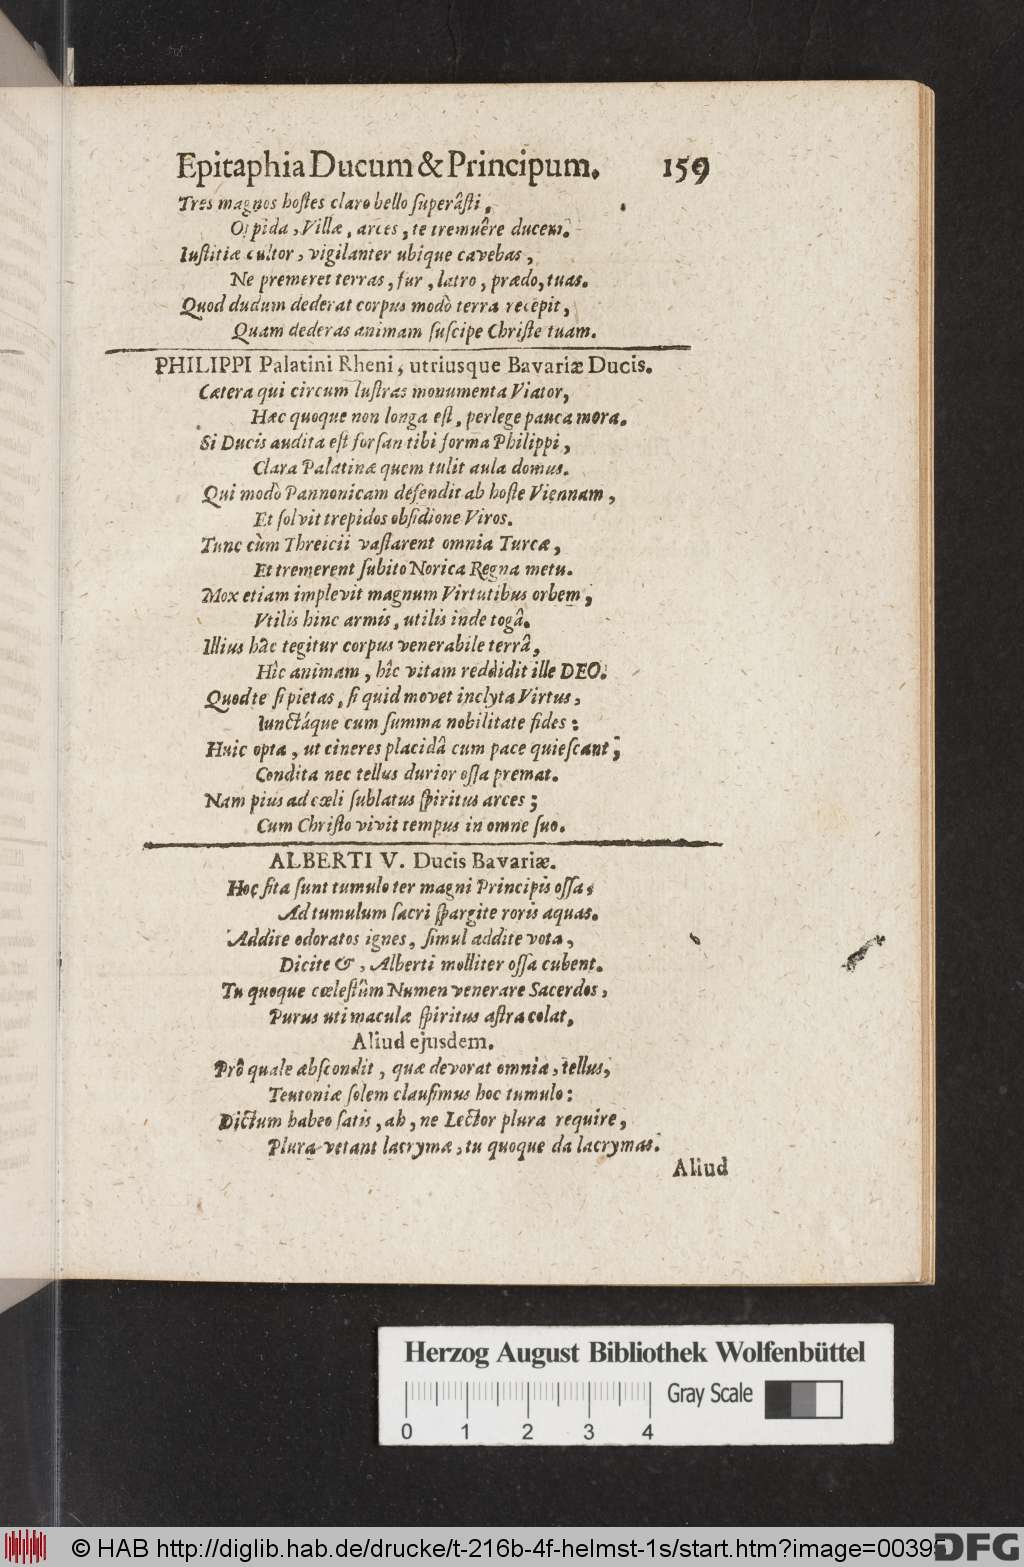 Epitaphia Ducum & Principum. 159
Tres magnos hoſtes claro bello ſuperâſti,
Oppida, Villæ, arces, te tremuêre ducem.
Iuſtitiæ cultor, vigilanter ubique cavebas,
Ne premeret terras, fur, latro, prædo, tuas.
Quod dudum dederat corpus modò terra recepit,
Quam dederas animam ſuſcipe Chriſte tuam.
PHILIPPI Palatini Rheni, utriusque Bavariæ Ducis.
Cætera qui circum luſtras monumenta Viator,
Hæc quoque non longa eſt, perlege pauca mora.
Si Ducis audita eſt forſan tibi forma Philippi,
Clara Palatinæ quem tulit aula domus.
Qui modò Pannonicam defendit ab hoſte Viennam,
Et ſolvit trepidos obſidione Viros.
Tunc cùm Threicii vaſtarent omnia Turcæ,
Et tremerent ſubito Norica Regna metu.
Mox etiam implevit magnum Virtutibus orbem,
Vtilis hinc armis, utilis inde togâ.
Illius hâc tegitur corpus venerabile terrâ,
Hîc animam, hîc vitam reddidit ille DEO.
Quod te ſi pietas, ſi quid movet inclyta Virtus,
Iunctáque cum ſumma nobilitate fides:
Huic opta, ut cineres placidâ cum pace quieſcant;
Condita nec tellus durior oſſa premat.
Nam pius ad cœli ſublatus ſpiritus arces;
Cum Chriſto vivit tempus in omne ſuo.
ALBERTI V. Ducis Bavariæ.
Hoc ſita ſunt tumulo ter magni Principis oſſa,
Ad tumulum ſacri ſpargite roris aquas.
Addite odoratos ignes, ſimul addite vota,
Dicite &, Alberti molliter oſſa cubent.
Tu quoque cœleſtûm Numen venerare Sacerdos,
Purus uti maculæ ſpiritus aſtra colat,
Aliud ejusdem.
Prô quale abſcondit, quæ devorat omnia, tellus,
Teutoniæ ſolem clauſimus hoc tumulo:
Dictum habeo ſatis, ah, ne Lector plura require,
Plura vetant lacrymæ, tu quoque da lacrymas.
Aliud
Herzog August Bibliothek Wolfenbüttel
Gray Scale
0 1 2 3 4
© HAB http://diglib.hab.de/drucke/t-216b-4f-helmst-1s/start.htm?image=00395
DFG